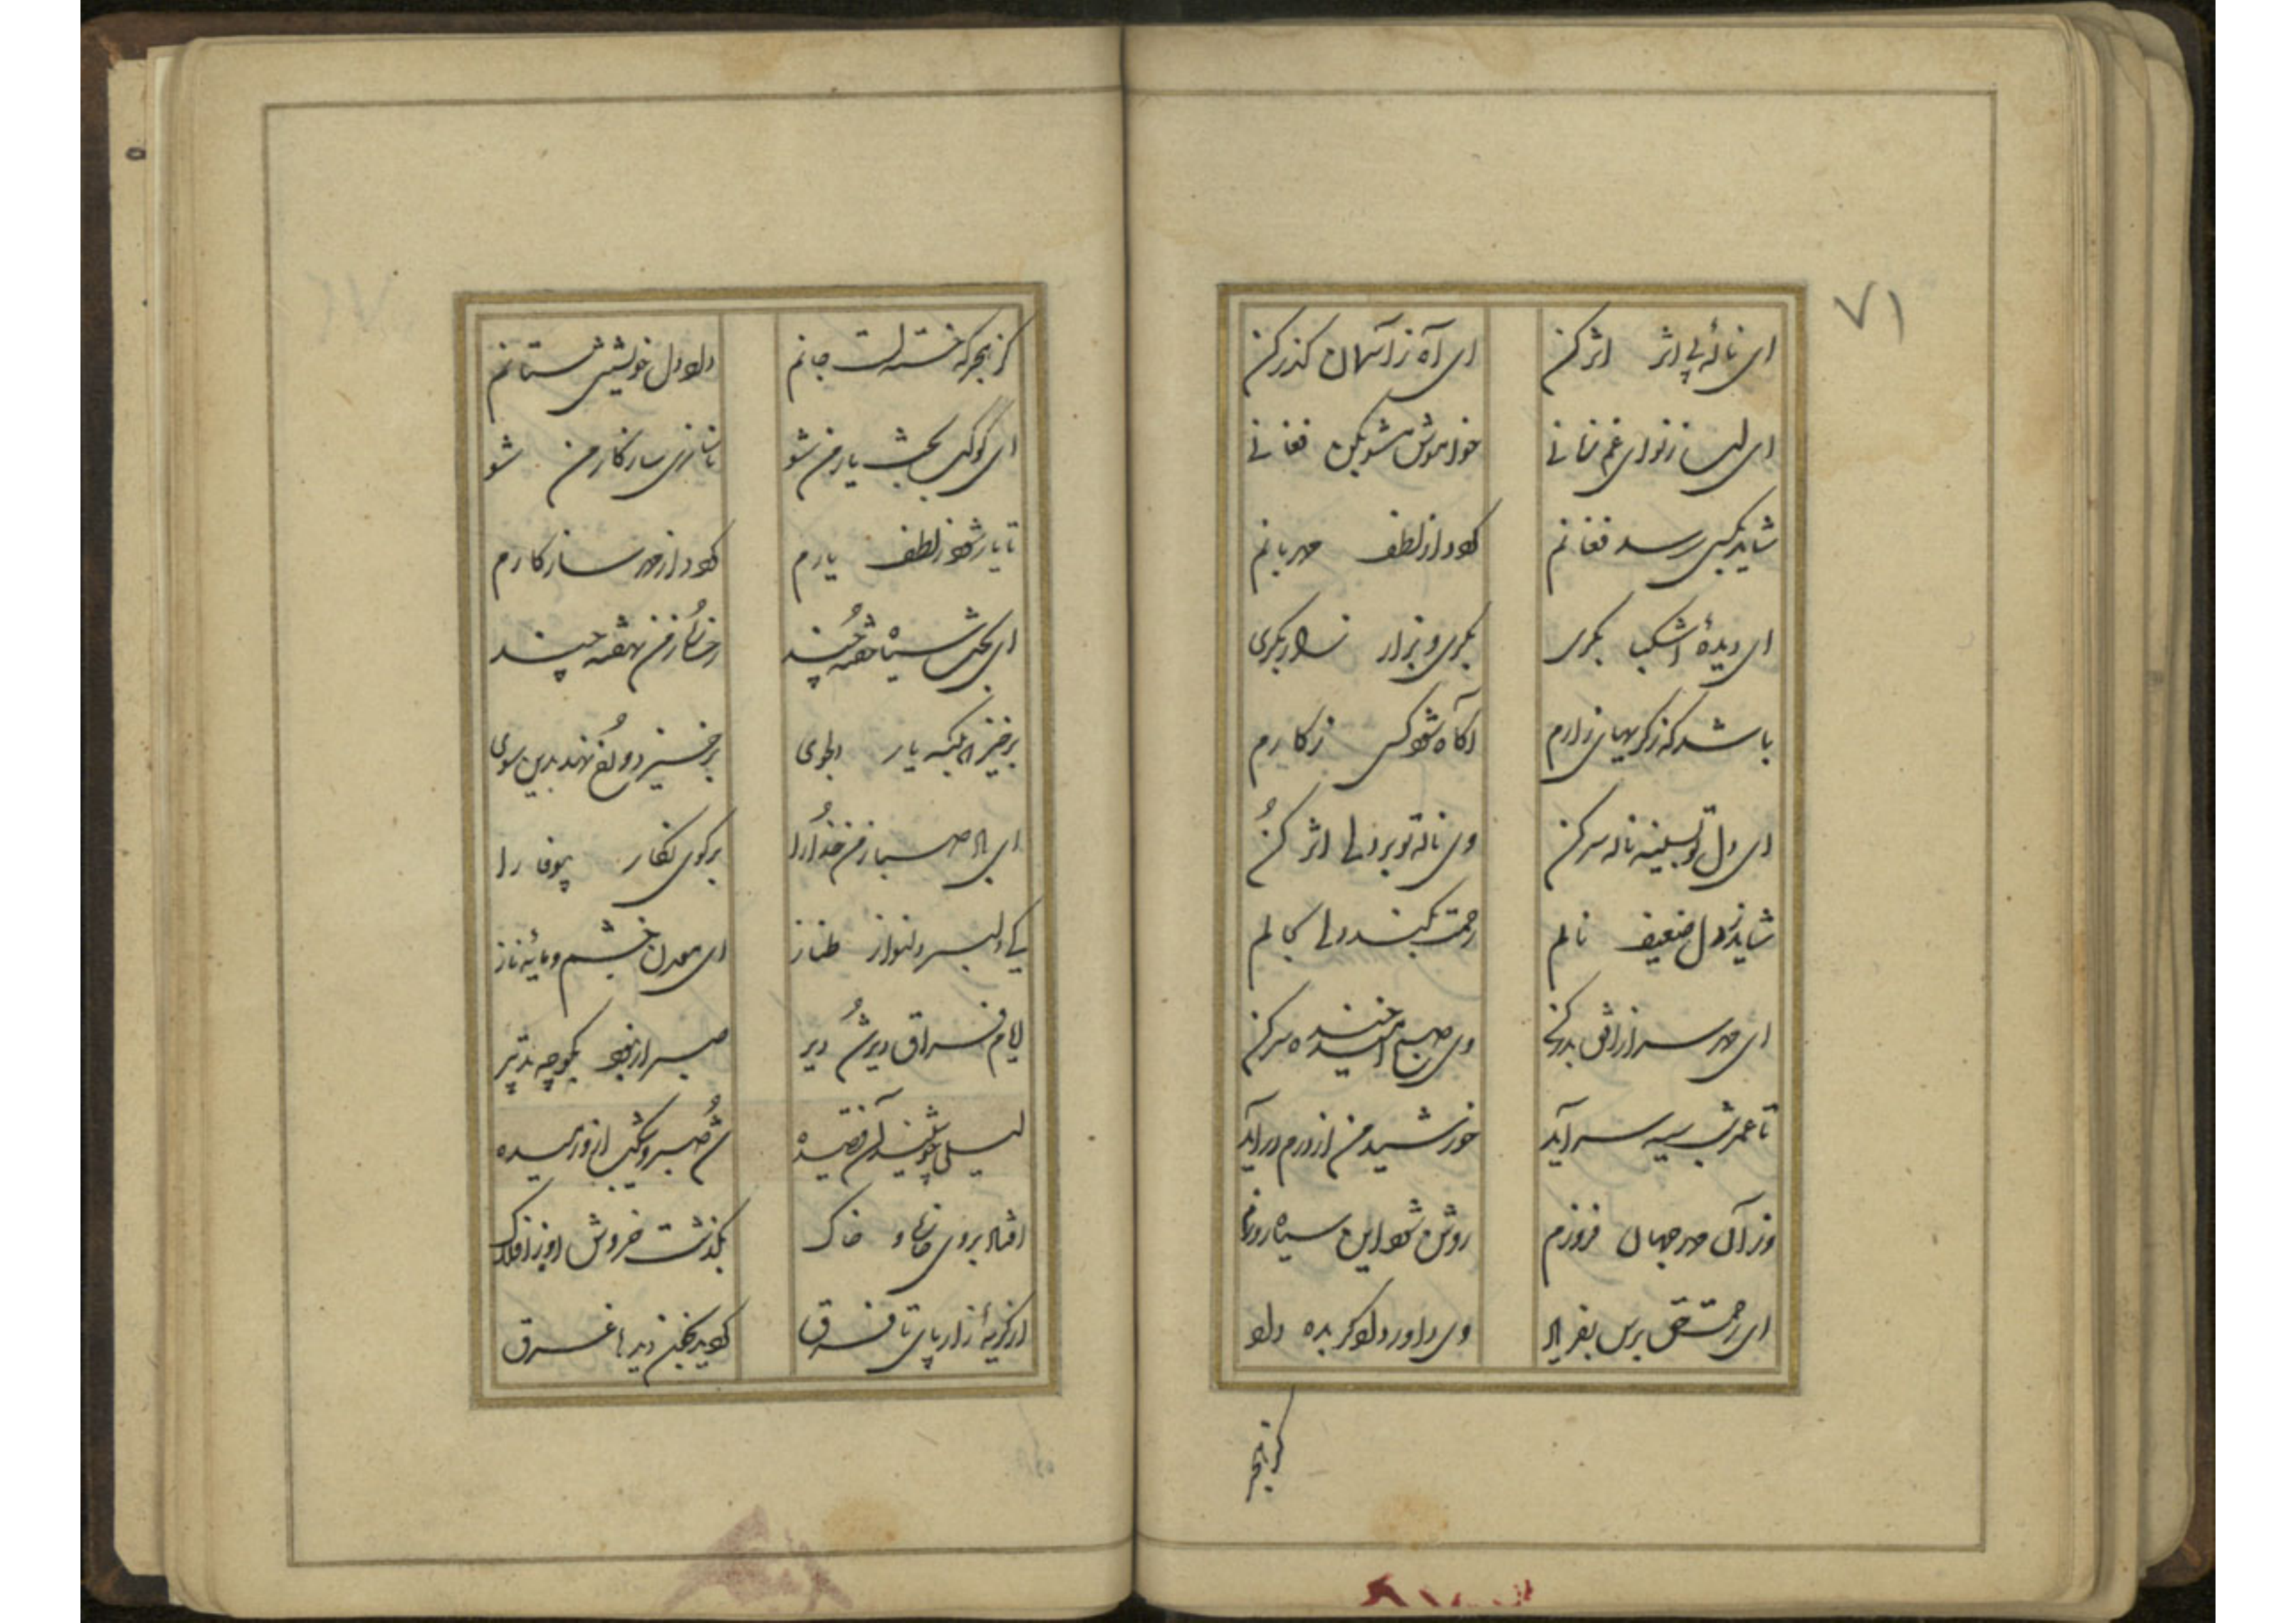 ۷۱
ای ناله بی اثر اثر کن ای آه ز آسمان گذر کن
ای لب ز نوای غم فغانی خاموش مشو بکن فغانی
شاید بکسی رسد فغانم گردد از لطف مهربانم
ای دیده اشکبار بگری بگری و بزار زار بگری
باشد که ز گریهای زارم آگاه شود کسی ز کارم
ای دل تو بسینه ناله سر کن وی ناله تو بر دلی اثر کن
شاید ز دل ضعیف نالم رحمت بکند دلی بحالم
ای مهر سر از افق بدر کن وی صبح امید خنده سر کن
تا عمر شب سیه سر آید خورشید من از درم در آید
وز آن مهر جهان فروزم روشن شود این سیاه روزم
ای رحمت حق برس بفریاد وی داور دادگر بده داد
کز هجر
کز هجر که خسته است جانم داد دل خویش بستانم
ای کوکب بخت یار من شو ناسازی سازگار من شو
تا یار شود ز لطف یارم گردد از مهر سازگارم
ای بخت سیاه خفته چند رخسار ز من نهفته چند
برخیز که بلکه یار دلجوی برخیزد و رخ نهد بدین سوی
ای باد صبا ز من خدا را بر گوی نگار بیوفا را
کی دلبر دلنواز طناز ای معدن خشم و مایه ناز
ایام فراق دیر شد دیر صبر از تو بگو چه تدبیر
لیلی چو شنید آن قصیده شد صبر و شکیب از او رمیده
افتاد بروی خاک بگذشت خروش او ز افلاک
از گریه زار پای تا فرق گردید بخون دیدها غرق